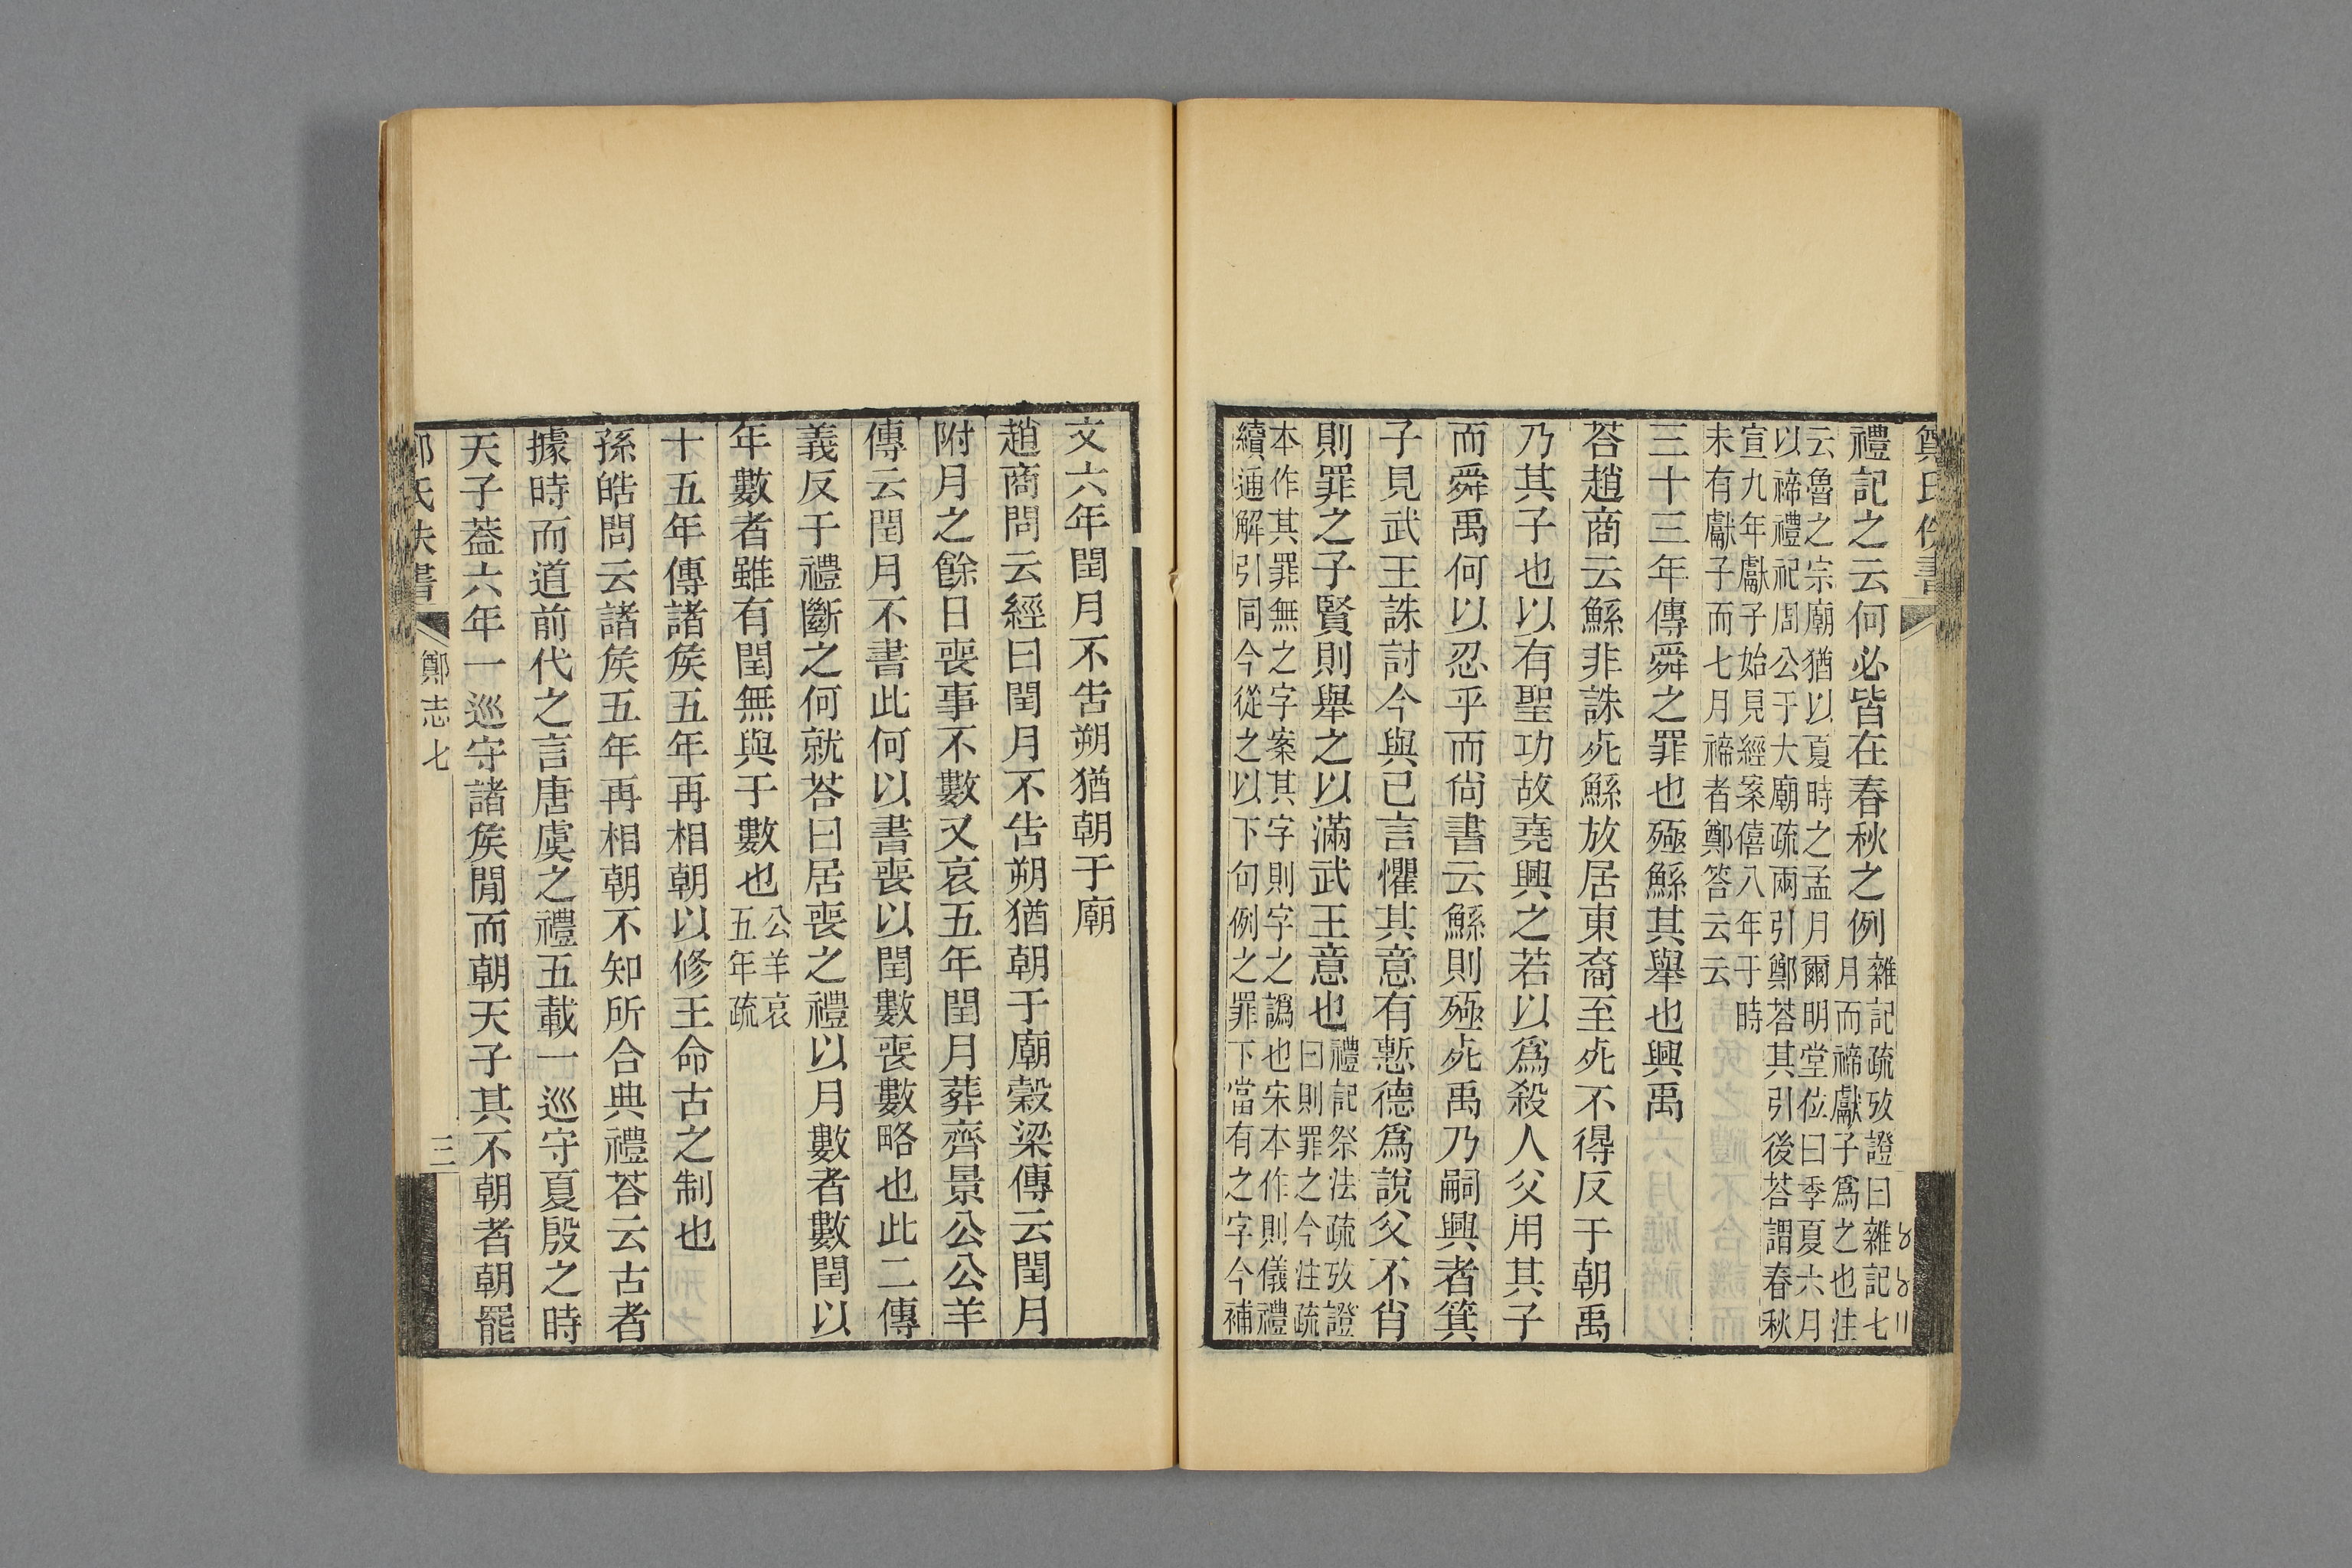 鄭氏佚書
禮記之云何必皆在春秋之例雜記疏攷證曰雜記七
月而禘獻子爲之也注
云魯之宗廟猶以夏時之孟月爾明堂位曰季夏六月
以禘禮祀周公于大廟疏兩引鄭荅其引後荅謂春秋
宣九年獻子始見經案僖八年于時
未有獻子而七月禘者鄭答云云
三十三年傳舜之罪也殛鯀其舉也興禹
荅趙商云鯀非誅死鯀放居東裔至死不得反于朝禹
乃其子也以有聖功故堯興之若以爲殺人父用其子
而舜禹何以忍乎而尙書云鯀則殛死禹乃嗣興者箕
子見武王誅討今與已言懼其意有慙德爲說父不肖
則罪之子賢則舉之以滿武王意也禮記祭法疏攷證
曰則罪之今注疏
本作其罪無之字案其字則字之譌也宋本作則儀禮
續通解引同今從之以下句例之罪下當有之字今補
文六年閏月不告朔猶朝于廟
趙商問云經曰閏月不告朔猶朝于廟穀梁傳云閏月
附月之餘日喪事不數又哀五年閏月葬齊景公公羊
傳云閏月不書此何以書喪以閏數喪數略也此二傳
義反于禮斷之何就荅曰居喪之禮以月數者數閏以
年數者雖有閏無與于數也公羊哀
五年疏
十五年傳諸矦五年再相朝以修王命古之制也
孫皓問云諸矦五年再相朝不知所合典禮荅云古者
據時而道前代之言唐虞之禮五載一巡守夏殷之時
天子葢六年一巡守諸矦閒而朝天子其不朝者朝罷
鄭氏佚書 鄭志七 三